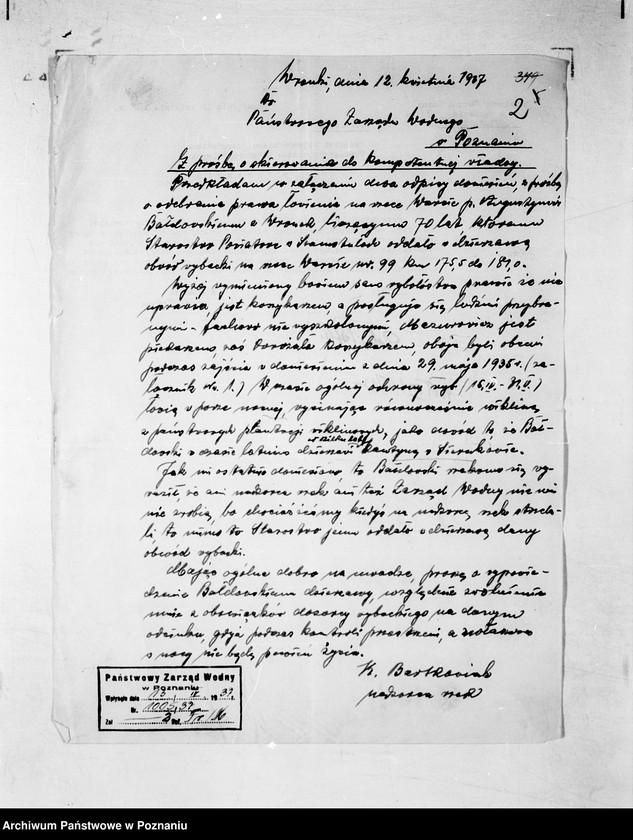 Wronki, dnia 12. kwietnia 1937
344
2
Do
Państwowego Zarządu Wodnego
w Poznaniu
Z prośbą o skierowanie do kompetentnej władzy.
Przedkładam w załączeniu dwa odpisy doniesień, z prośbą
o odebranie prawa łowienia na rzece Warcie p. Augustynowi
Bałdowskiemu z Wronek, liczącemu 70 lat, któremu
Starostwo Powiatowe w Szamotułach oddało w dzierżawę
obwód rybacki na rzece Warcie nr. 99 km 175,5 do 181,0.
Wyżej wymieniony bowiem sam rybołóstwa prawie że nie
uprawia, jest koszykarzem, a posługuje się ludźmi przybra-
nymi - fachowo nie wyszkolonymi, Mazurowicz jest
piekarzem, zaś Dorożała koszykarzem, obaje byli obecni
podczas zajścia w doniesieniu z dnia 29. maja 1936 r. (za-
łącznik No. 1.) W czasie ogólnej ochrony ryb
łowią w porze nocnej, wycinając równocześnie wiklinę
z państwowych plantacji wiklinowych, jako dowód to że Bał-
dowski w czasie letnim dzierżawi kantynę w Sierakowie.
w kilku lat
Jak mi ostatnio doniesiono, to Bałdowski miał się wy-
razić, że ani nadzorca rzek ani też Zarząd Wodny nic mi
nie zrobią, bo chociaż kiedyś na nadzorcę rzek strzela-
li to mimo to Starostwo jemu oddało w dzierżawę dany
obwód rybacki.
Mając ogólne dobro na uwadze, proszę o wypowie-
dzenie Bałdowskiemu dzierżawy, względnie zwolnienie
mnie z obowiązków dozoru rybackiego na danym
odcinku, gdyż podczas kontroli przestrzeni, a zwłaszcza
w nocy nie będę pewien życia.
K. Bartkowiak
nadzorca rzek
Państwowy Zarząd Wodny
w Poznaniu
Wpłynęło dnia 13 / IV 1937 r.
Nr. 1002/37
Zał. 2 Ref.
Archiwum Państwowe w Poznaniu